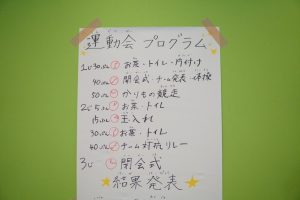 運動会 プログラム
1じ30ぷん お茶・トイレ・片付け
40ぷん 開会式 チーム発表・体操
50ぷん かりもの競走
2じ5ふん お茶・トイレ
15ふん 玉入れ
30ぷん お茶・トイレ
40ぷん チーム対抗リレー
3じ 閉会式
結果発表